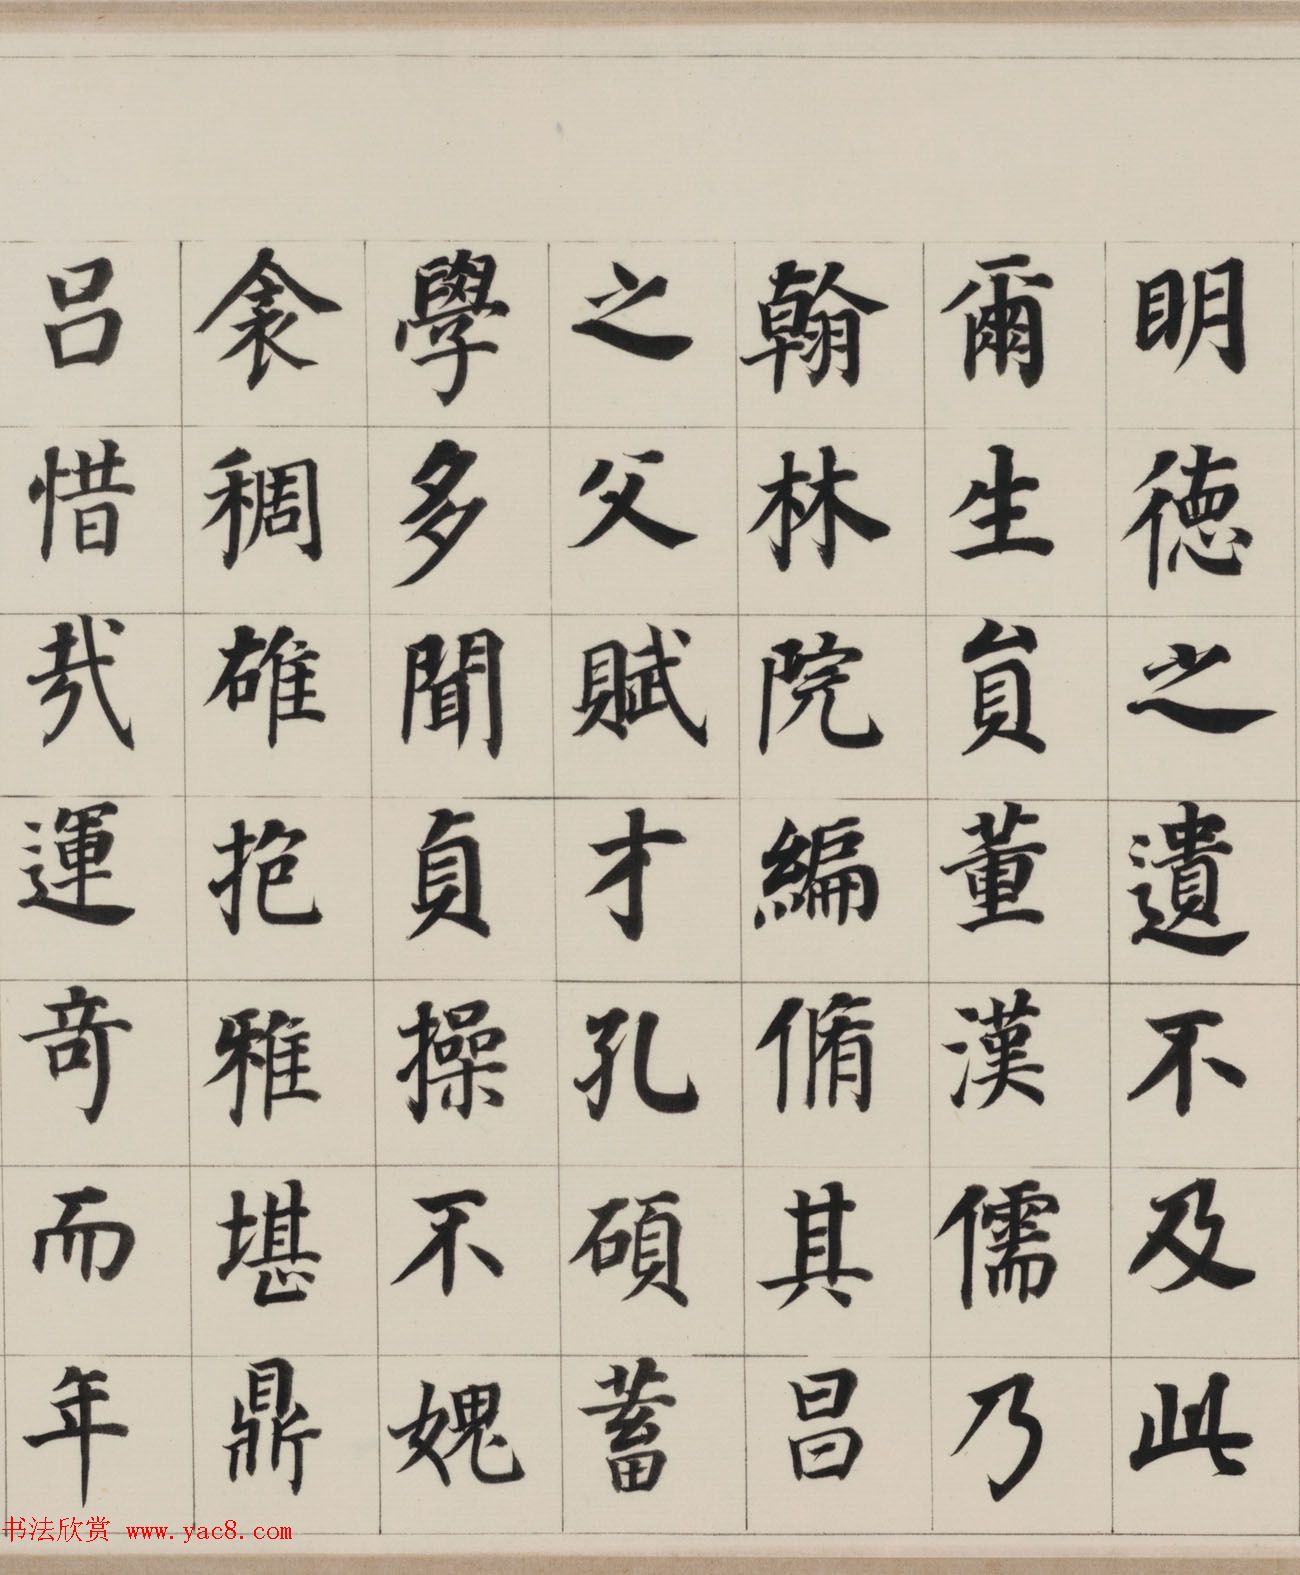 明德之遺不及此
爾生員董漢儒乃
翰林院編脩其昌
之父賦才孔碩蓄
學多聞貞操不媿
衾稠雄抱雅堪鼎
呂惜㢤運奇而年
书法欣赏 www.yac8.com